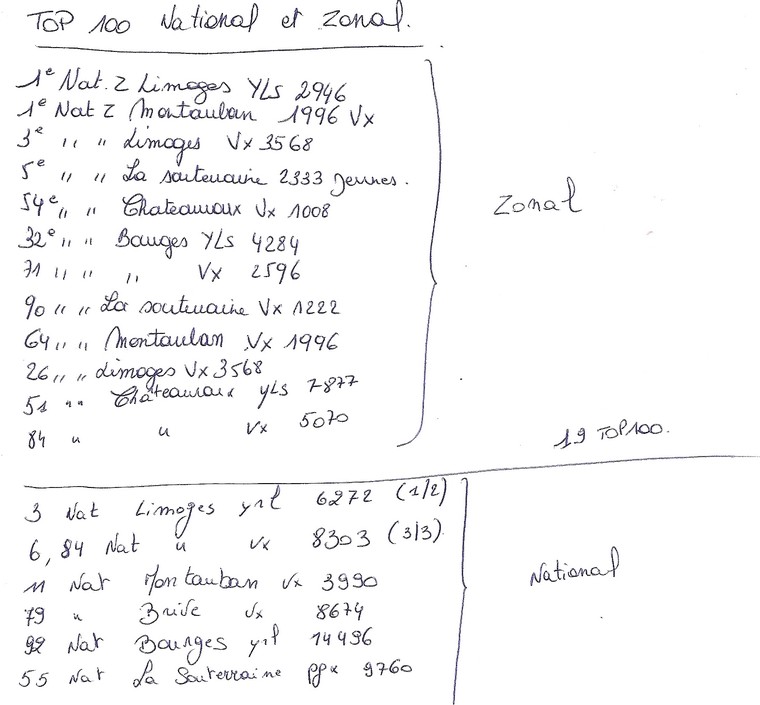 TOP 100 National et Zonal.
1e Nat. Z Limoges YLS 2946
1e Nat Z Montauban 1996 Vx
3e " " Limoges Vx 3568
5e " " La souteraine 2333 Jeunes.
54e " " Chateauroux Vx 1008
Zonal
32e " " Bourges YLS 4284
71 " " " Vx 2596
90 " " La souteraine Vx 1222
64 " " Montauban Vx 1996
26 " " Limoges Vx 3568
51 " " Chateauroux YLS 7877
84 " " Vx 5070
19 TOP 100.
3 Nat Limoges yrl 6272 (1/2)
6, 84 Nat " Vx 8303 (3/3)
11 Nat Montauban Vx 3990
National
79 " Brive Vx 8674
92 Nat Bourges yrl 14496
55 Nat La Souterraine pgx 9760